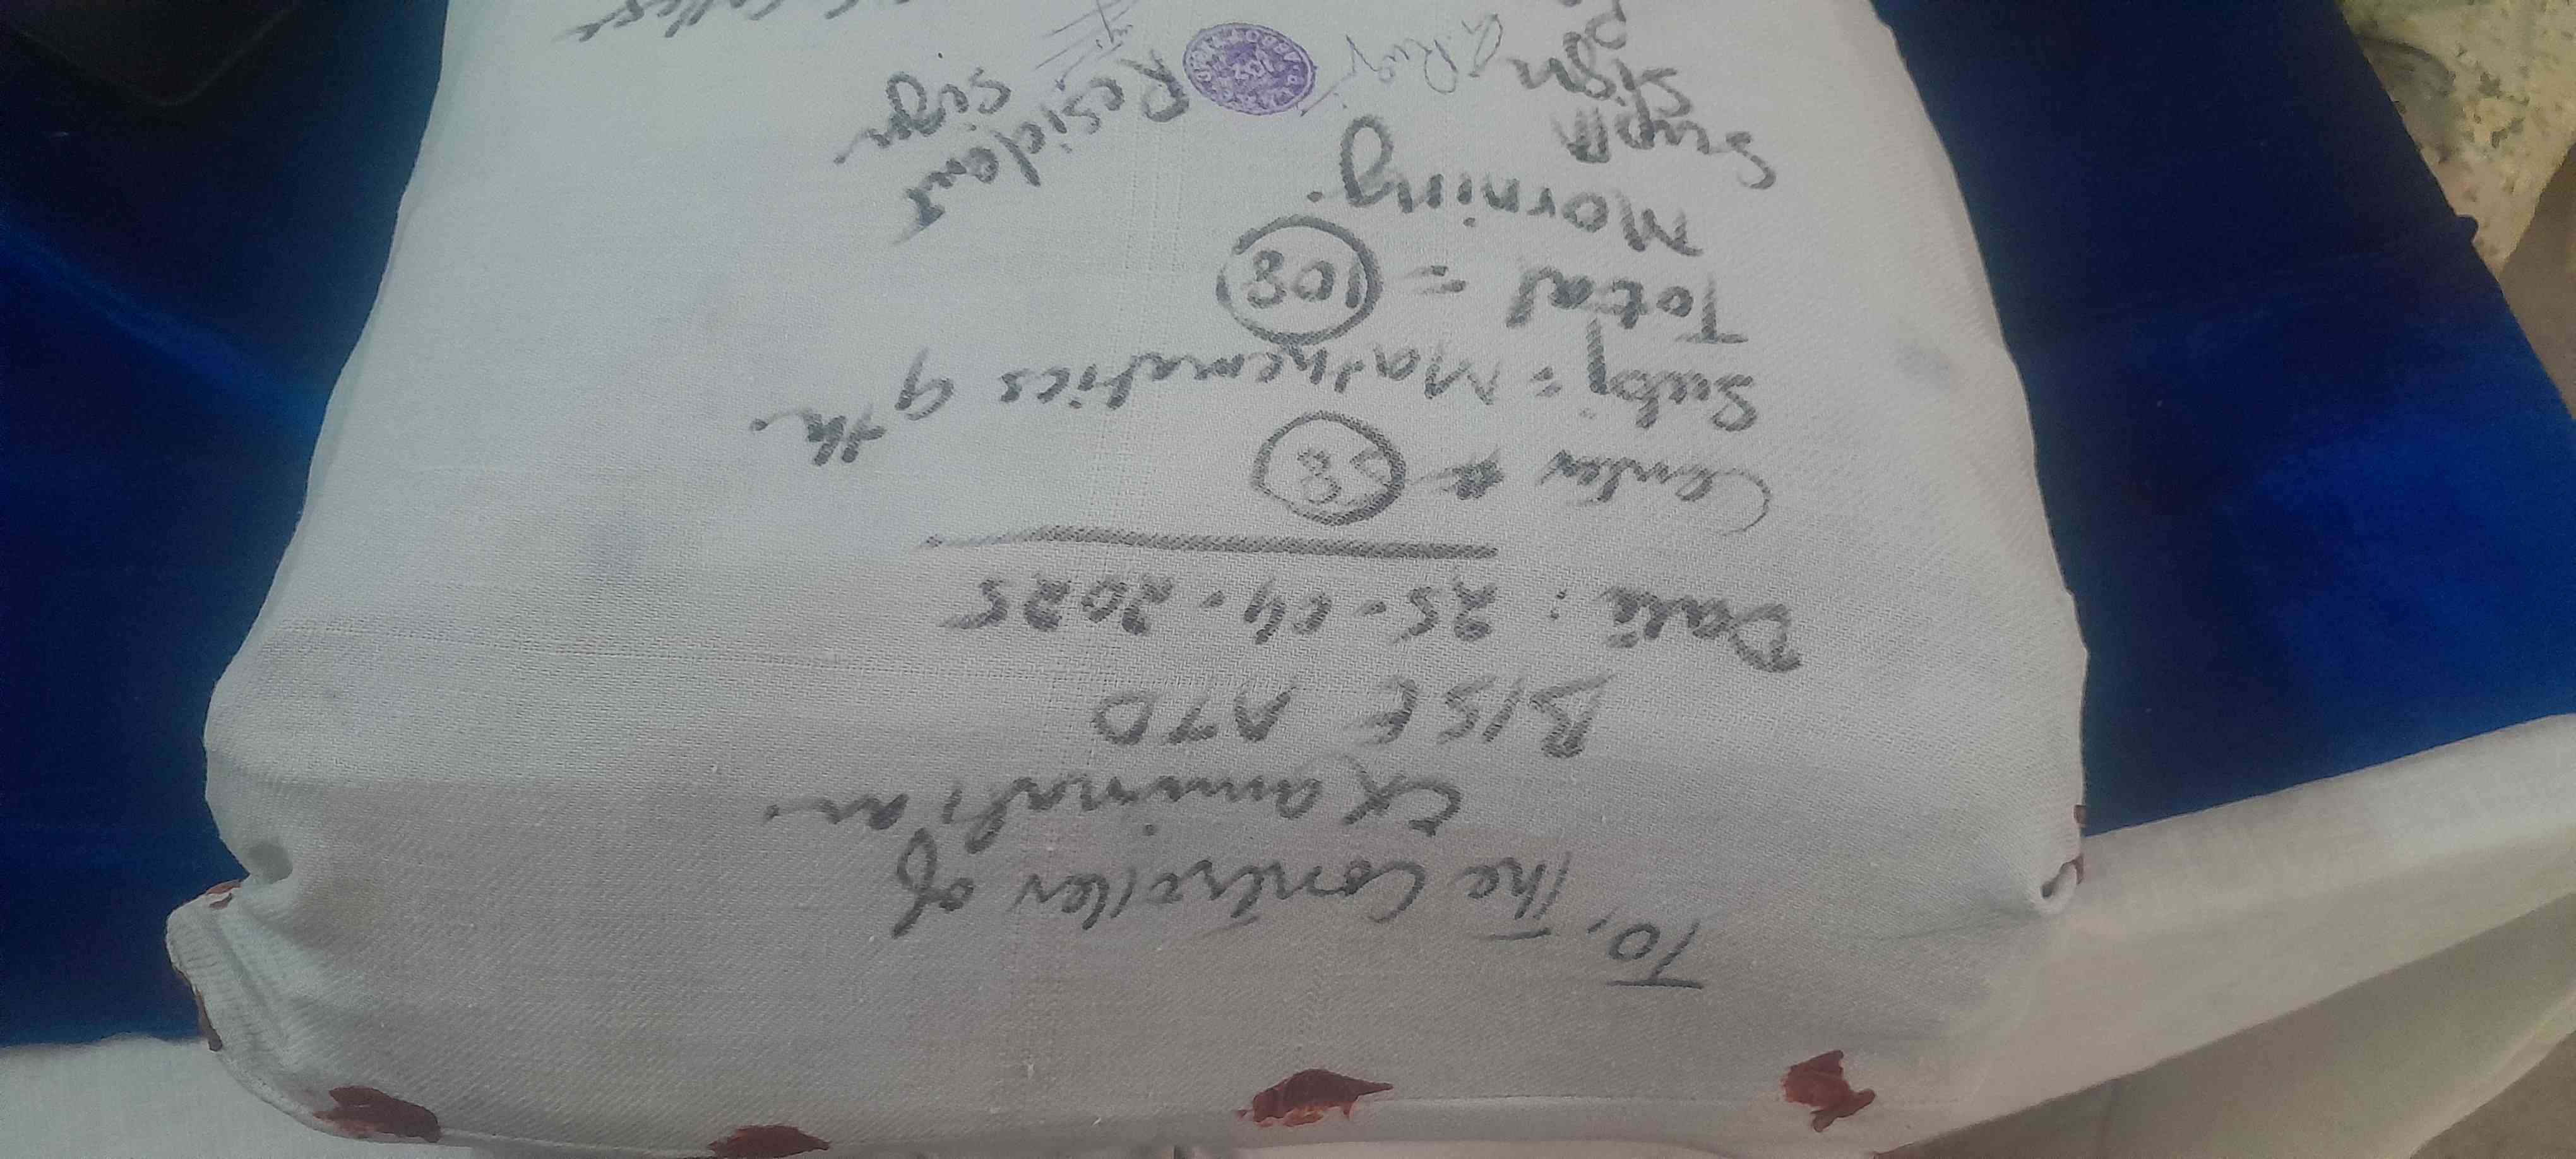 To, The Controller of
Exammination.
BISE ATD
Date: 25-04-2025
Center # 85
Subj: Mathematics 9th.
Total = 108
Morning.
Supdt Resident
Sign Sign